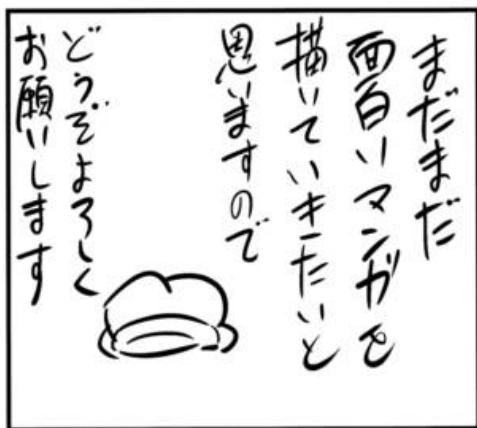 まだまだ
面白いマンガを
描いていきたいと
思いますので
どうぞよろしく
お願いします